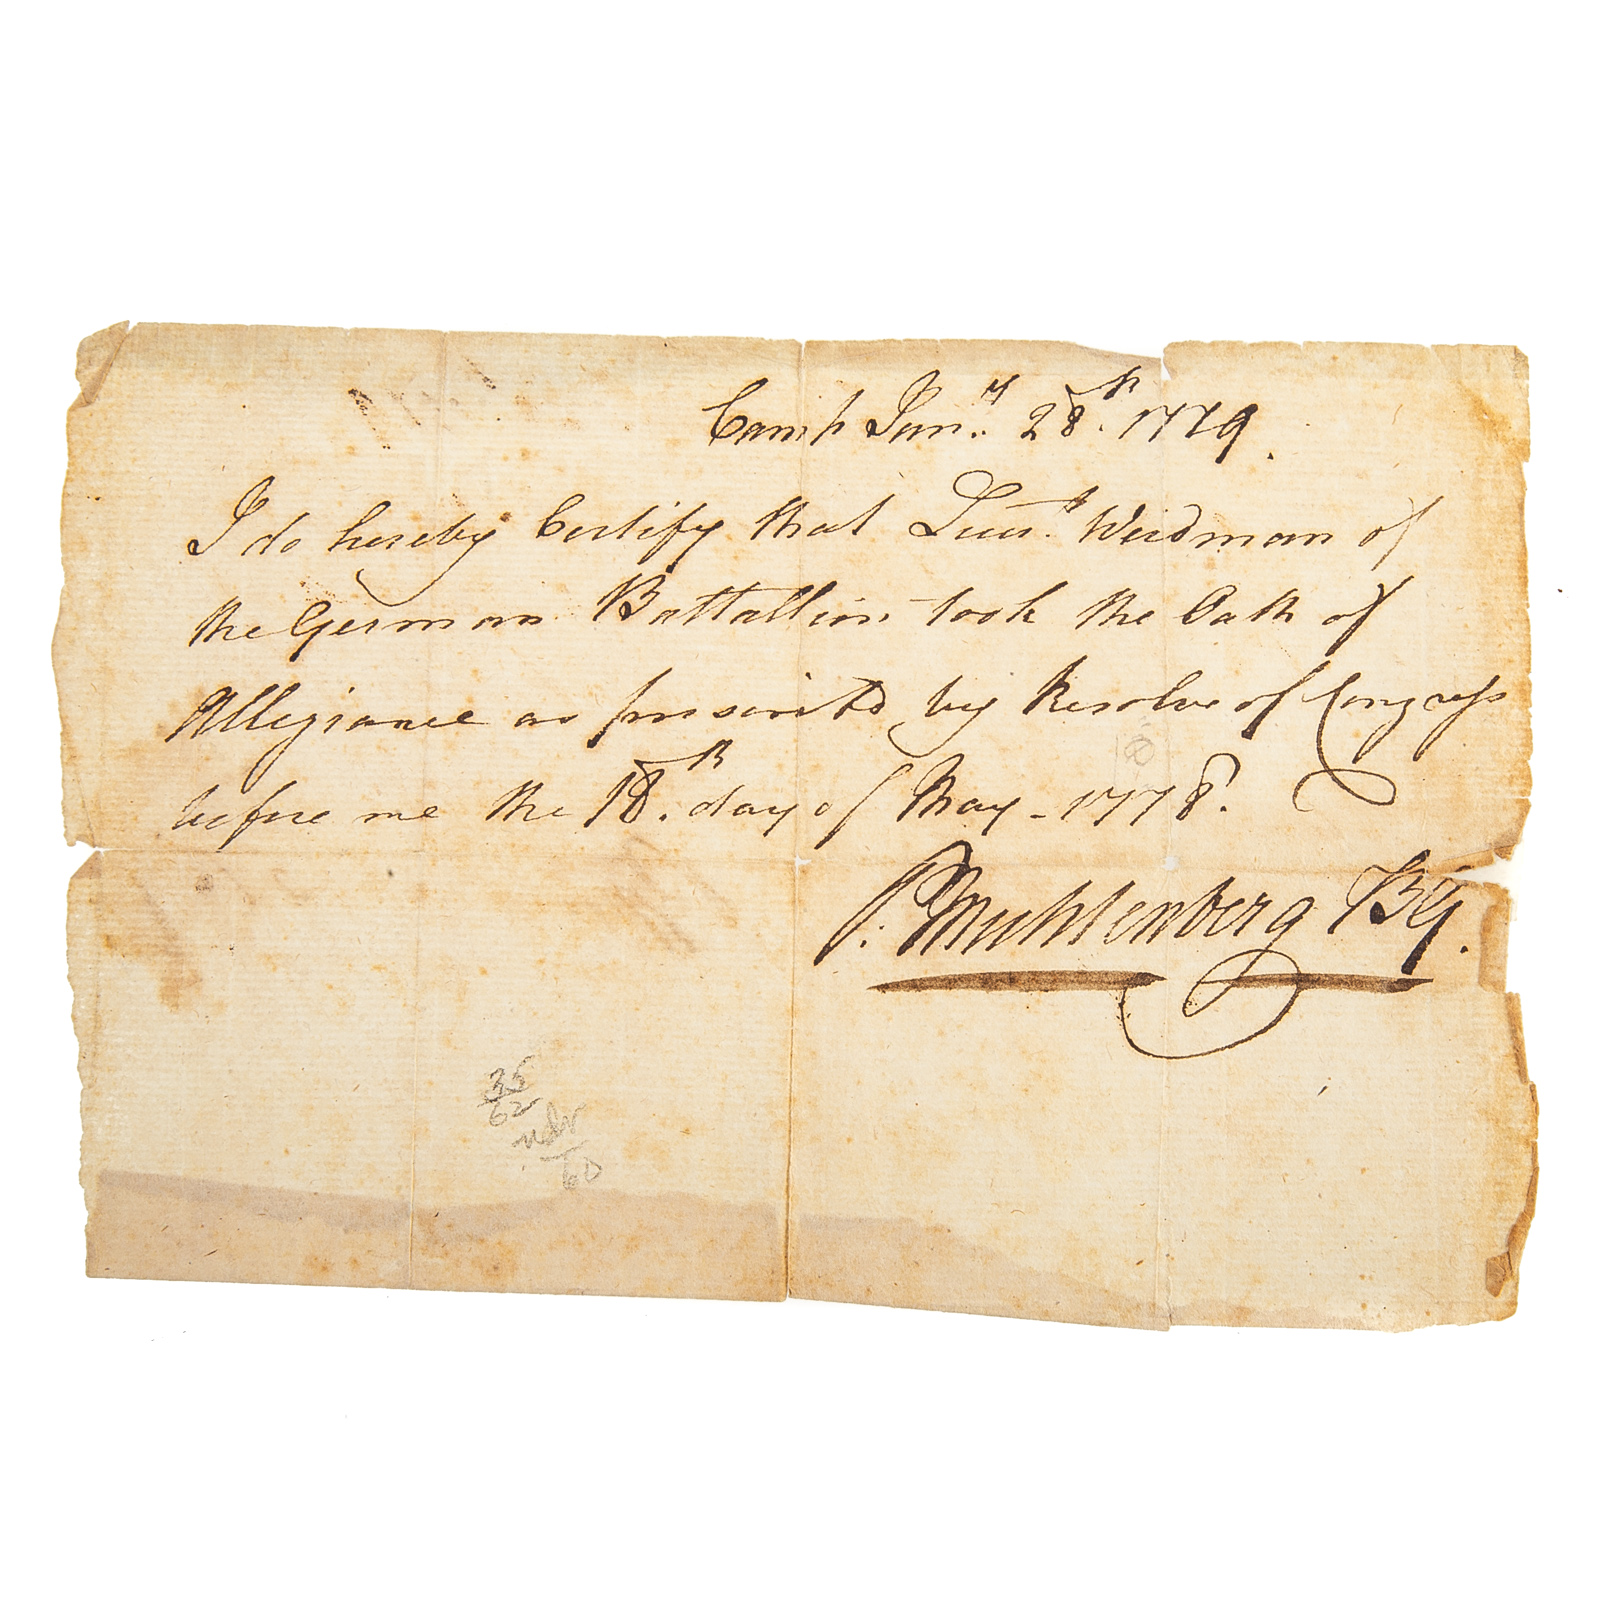 Camp Jan.y 28th. 1779.
I do hereby Certify that Lieut. Weidman of
the German Battallion took the Oath of
Allegiance as prescribd by Resolve of Congress
before me the 18th. day of May - 1778.
P: Muhlenberg BG.
35
62
60